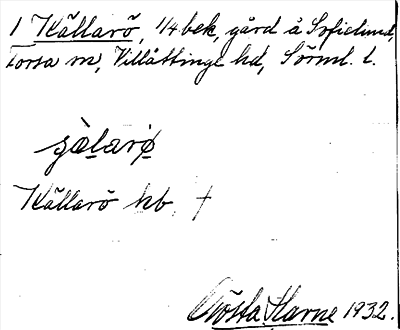 1 Källarö, 1/4 bek, gård å Sofielund,
Torsa sn, Villåttinge hd, Sörml. l.
Källarö kb. †
Gösta Harne 1932.